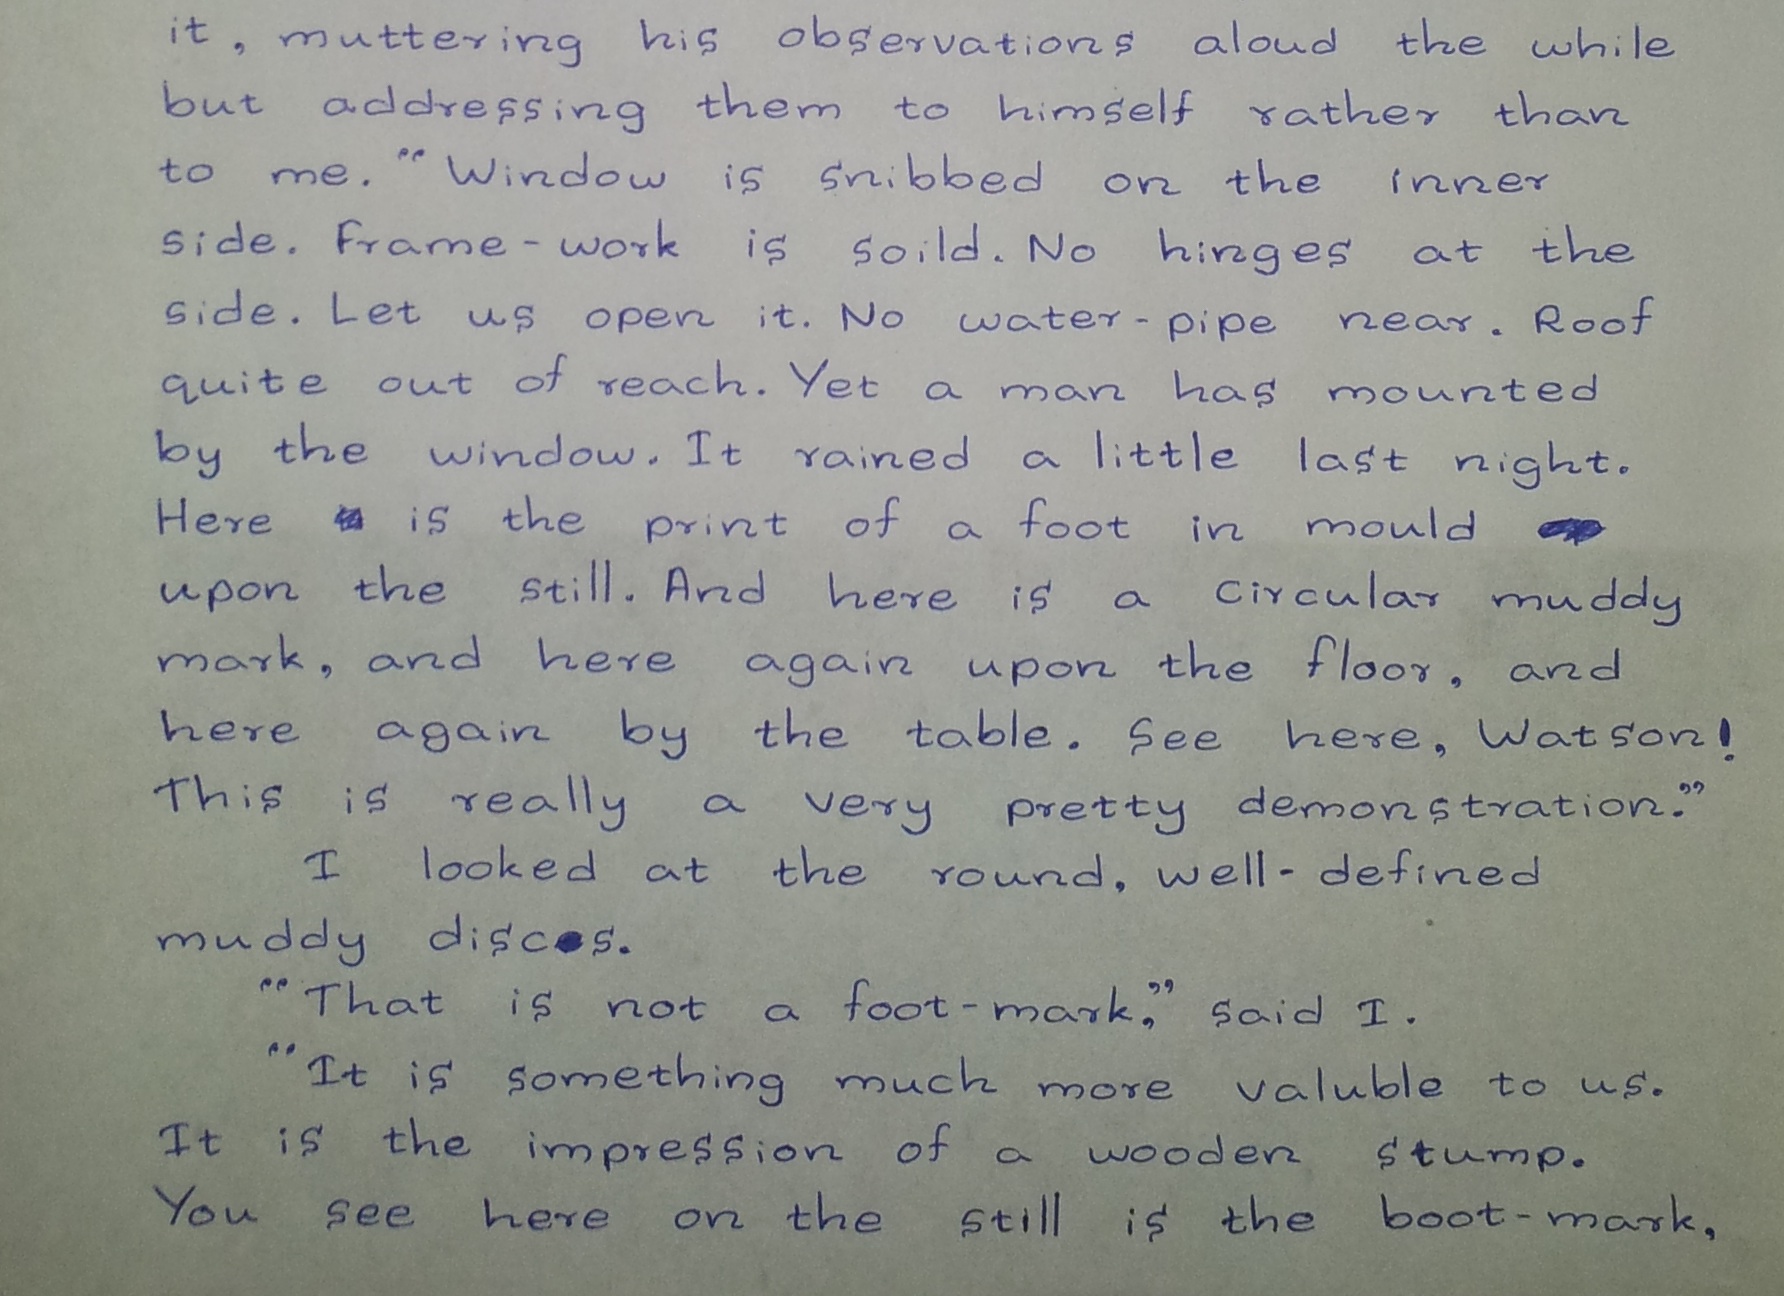 it, muttering his observations aloud the while
but addressing them to himself rather than
to me. "Window is snibbed on the inner
side. Frame-work is soild. No hinges at the
side. Let us open it. No water-pipe near. Roof
quite out of reach. Yet a man has mounted
by the window. It rained a little last night.
Here is the print of a foot in mould
upon the still. And here is a circular muddy
mark, and here again upon the floor, and
here again by the table. See here, Watson!
This is really a very pretty demonstration."
I looked at the round, well-defined
muddy discs.
"That is not a foot-mark," said I.
"It is something much more valuble to us.
It is the impression of a wooden stump.
You see here on the still is the boot-mark,